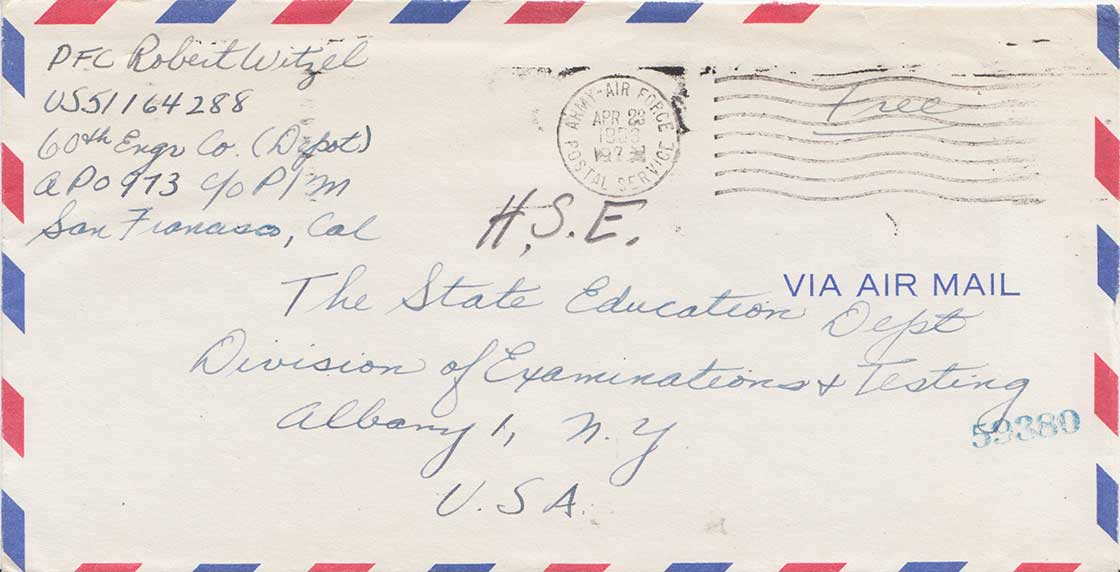 PFC Robert Witzel
US51164288
60th Engr Co. (Depot)
APO 973 c/o P/M
San Francisco, Cal
ARMY-AIR FORCE
APR 23
POSTAL SERVICE
Free
H.S.E.
VIA AIR MAIL
The State Education Dept
Division of Examinations & Testing
Albany 1, N.Y.
U.S.A.
59380